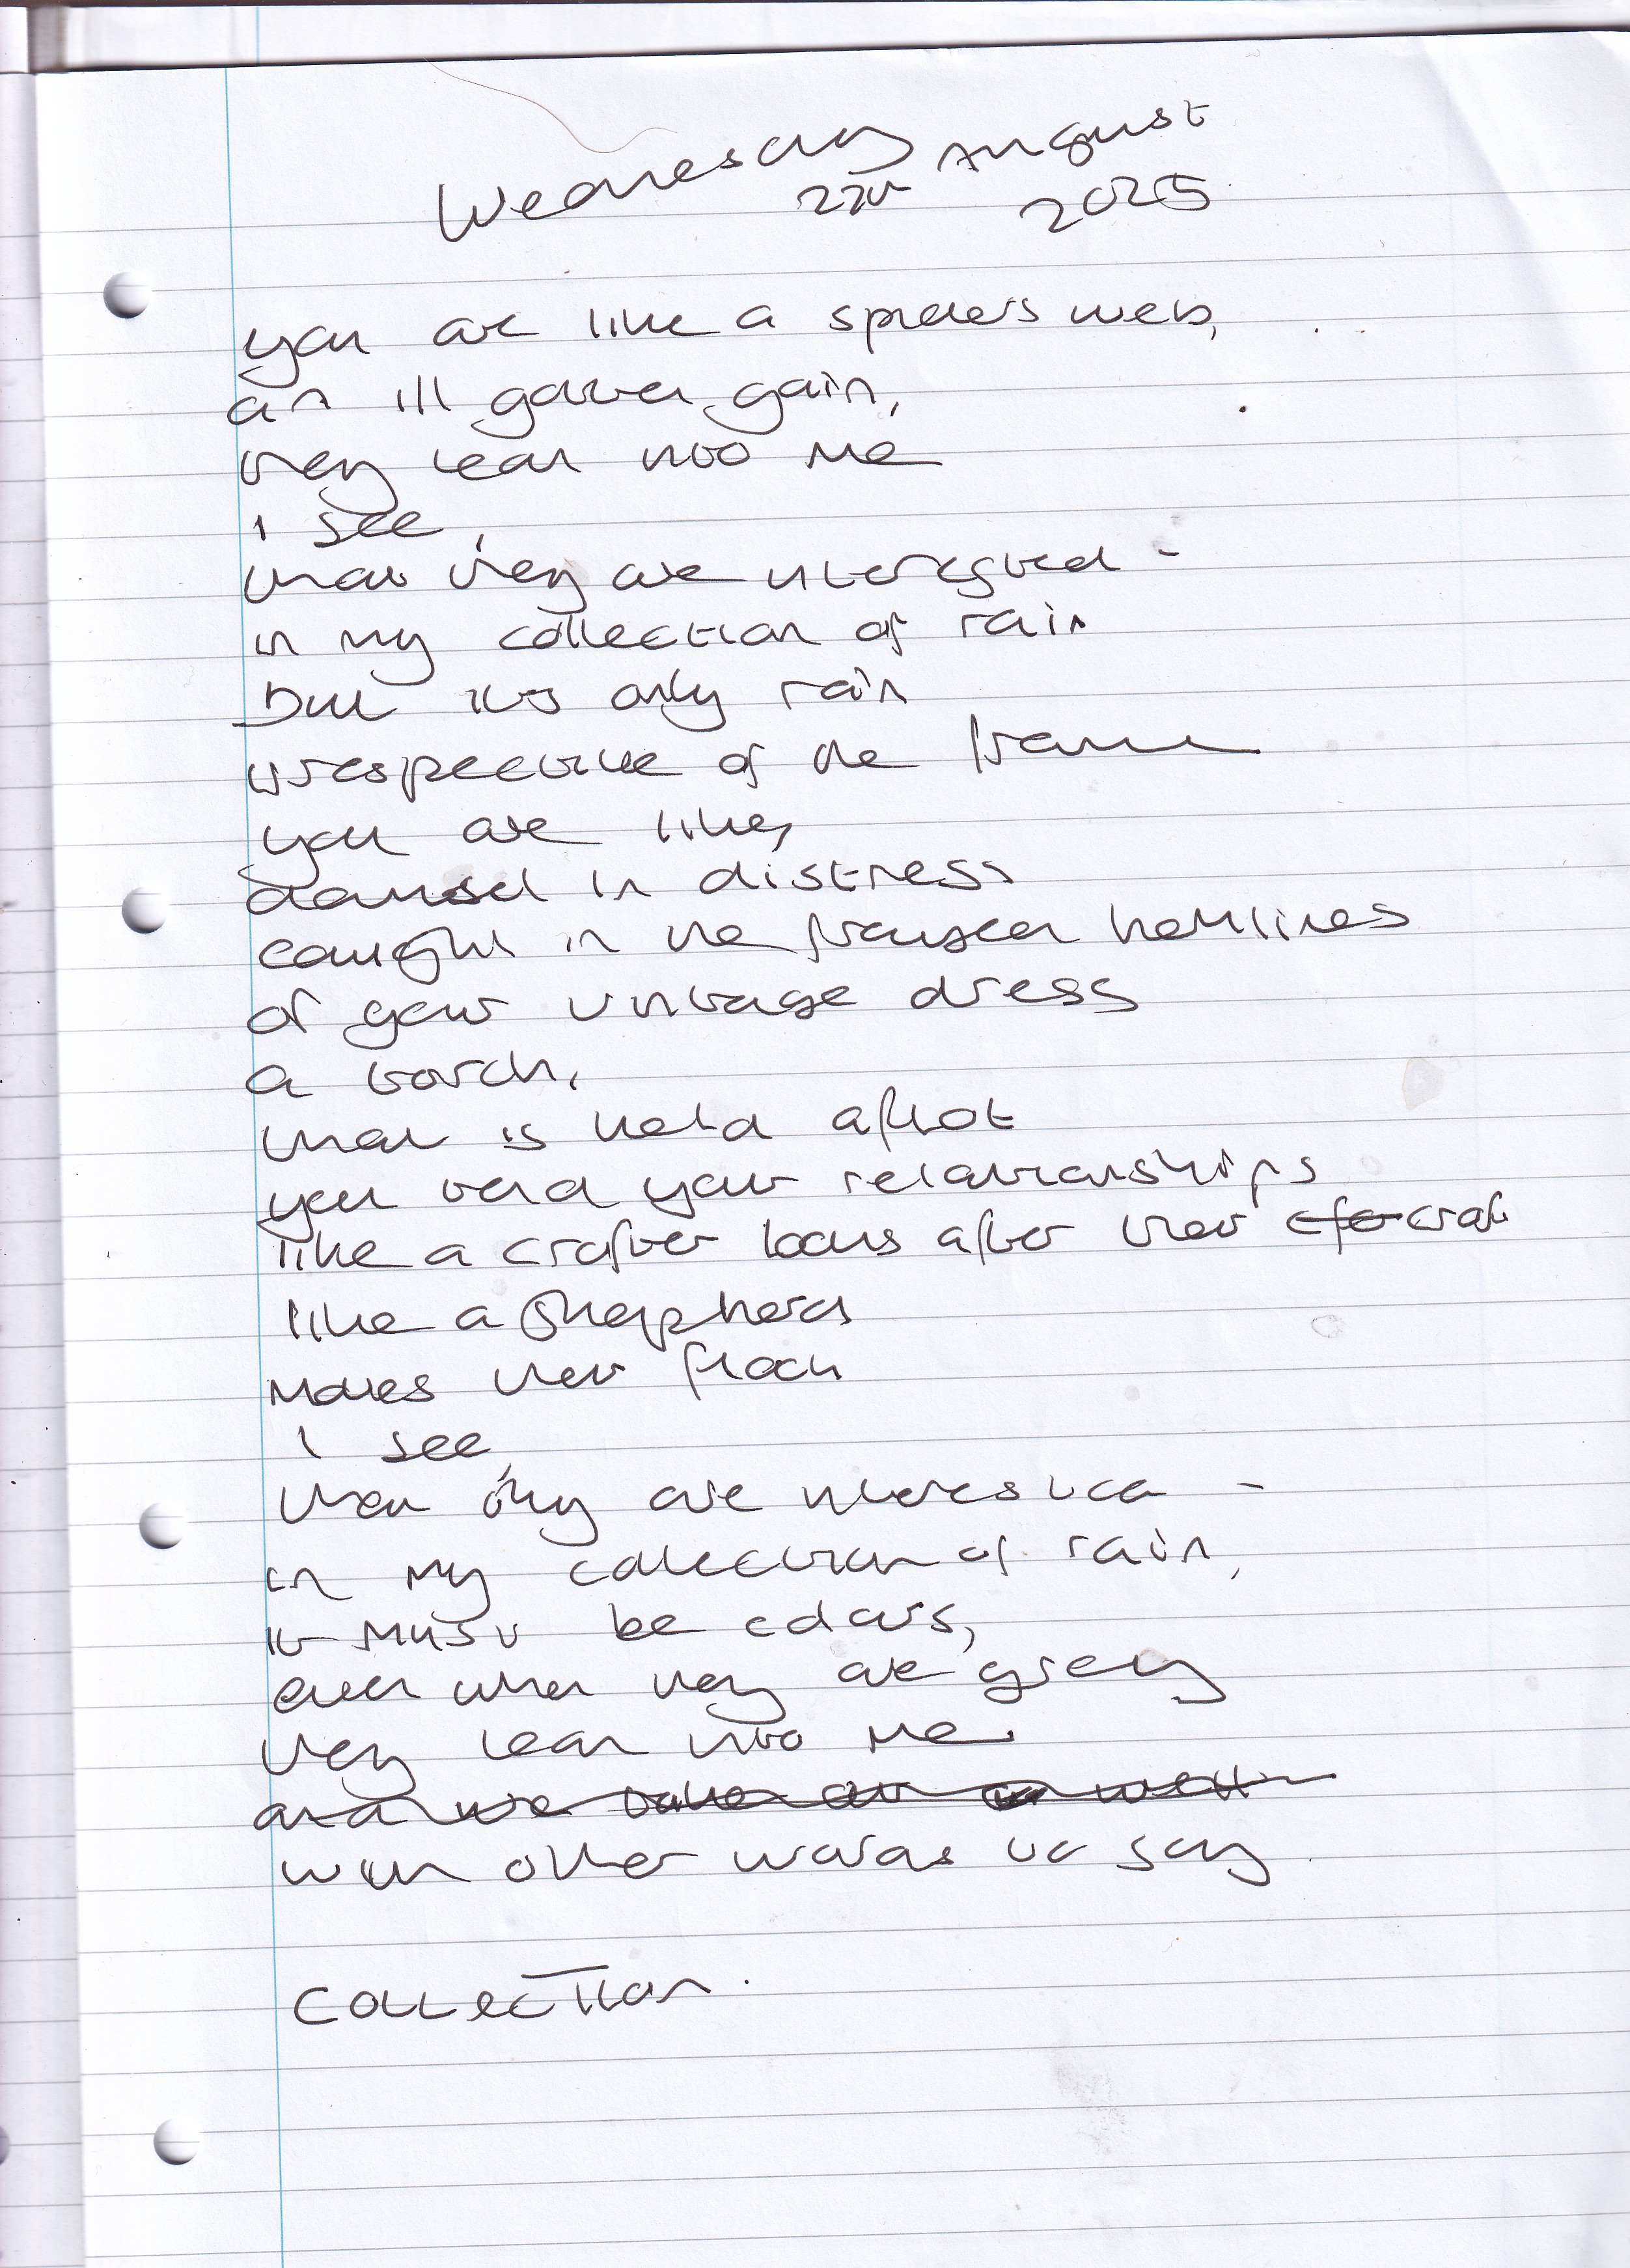 Wednesday August
27th 2025
you are like a spiders web,
an ill gotten gain,
they lean into me
I see,
that they are interested -
in my collection of rain
but its only rain
irrespective of the frame
you are like,
damsel in distress
caught in the hemlines
of your vintage dress
a torch,
that is held aflot
you tend your relationships
like a crafter looks after their craft
like a shepherd
moves their flock
I see,
that they are interested -
in my collection of rain,
it must be colours,
even when they are grey
they lean into me
and we take it as well
with other words to say
COLLECTION.